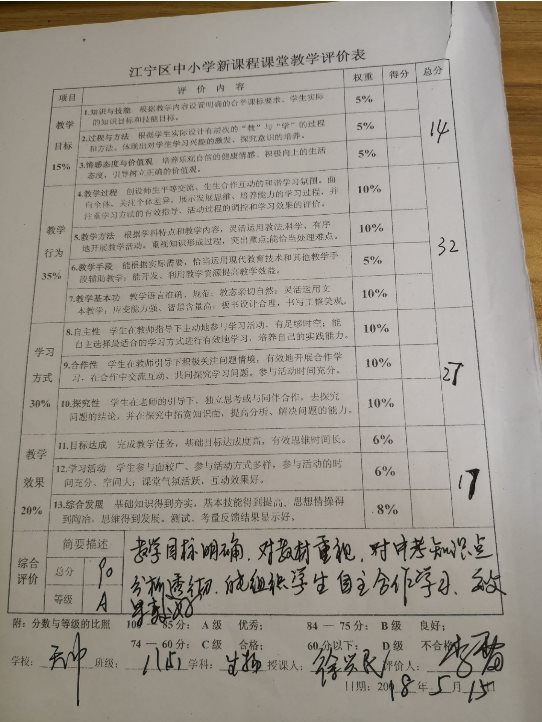 江宁区中小学新课程课堂教学评价表
项目 评价内容 权重 得分 总分
教学目标 15%
1.知识与技能 根据教学内容设置明确的合乎课标要求、学生实际的知识目标和技能目标。 5%
2.过程与方法 根据学生实际设计有层次的“教”与“学”的过程和方法。体现出对学生学习兴趣的激发、探究意识的培养。 5%
3.情感态度与价值观 培养乐观自信的健康情感、积极向上的生活态度，引导树立正确的价值观。 5%
14
教学行为 35%
4.教学过程 创设师生平等交流、生生合作互动的和谐学习氛围。面向全体、关注个体差异，展示发展思维、培养能力的学习过程，并注重学习方式的有效指导、活动过程的调控和学习效果的评价。 10%
5.教学方法 根据学科特点和教学内容，灵活运用教法,科学、有序地开展教学活动。重视知识形成过程，突出重点;能恰当处理难点。 10%
6.教学手段 能根据实际需要，恰当运用现代教育技术和其他教学手段辅助教学；能开发、利用教学资源提高教学效能。 5%
7.教学基本功 教学语言准确、规范；教态亲切自然；灵活运用文本教学；应变能力强、智慧含量高；板书设计合理，书写工整美观。 10%
32
学习方式 30%
8.自主性 学生在教师指导下主动地参与学习活动、有足够时空；能自主选择最适合的学习方式进行有效地学习，培养自己的实践能力。 10%
9.合作性 学生在教师引导下积极关注问题情境，有效地开展合作学习，在合作中交流互动、共同探究学习问题。参与活动时间充分。 10%
10.探究性 学生在老师的引导下，独立思考或与同伴合作，去探究问题的结论，并在探究中拓宽知识面，提高分析、解决问题的能力。 10%
27
教学效果 20%
11.目标达成 完成教学任务，基础目标达成度高，有效思维时间长。 6%
12.学习活动 学生参与面较广、参与活动方式多样，参与活动的时间充分、空间大；课堂气氛活跃，互动效果好。 6%
13.综合发展 基础知识得到夯实，基本技能得到提高、思想情操得到陶冶，思维得到发展。测试、考量反馈结果显示好。 8%
17
综合评价 简要描述
总分 90
等级 A
教学目标明确，对教材重视，对中考知识点
分析透彻，能组织学生自主合作学习，教学
效果好
附：分数与等级的比照 100—85分：A级 优秀； 84—75分：B级 良好；
74—60分：C级 合格； 60分以下：D级 不合格
学校： 班级： 八(5) 学科： 生物 授课人： 评价人：
日期：2018年5月15日